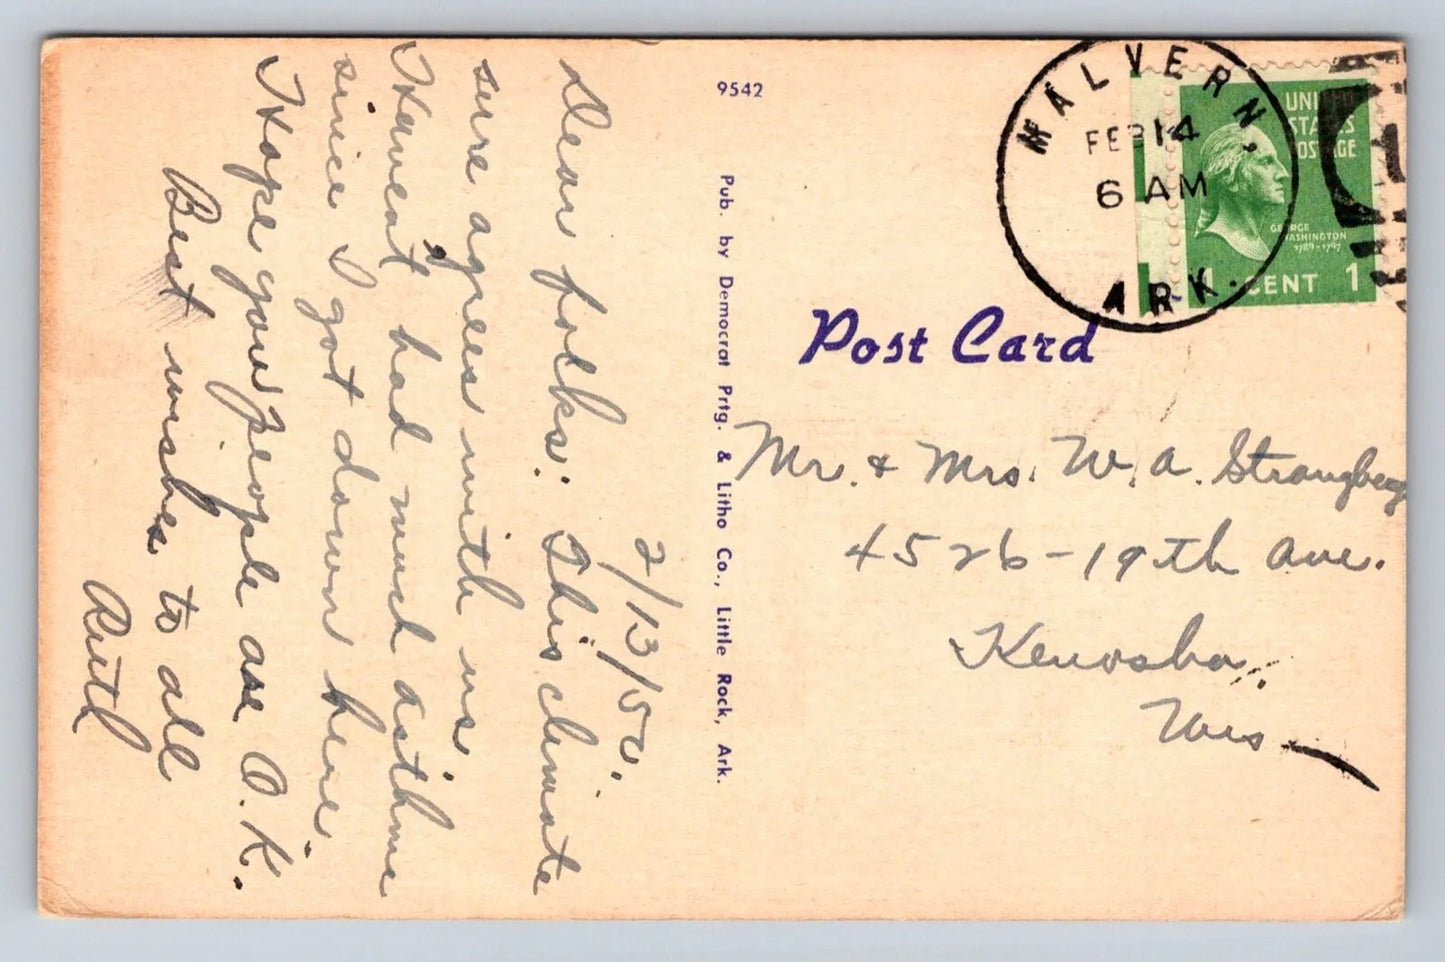 2/13/50.
Dear folks: This climate
sure agrees with us.
Havent had much asthma
since I got down here.
Hope you people are O.K.
Best wishes to all
Ruth
9542
Pub. by Democrat Prtg. & Litho Co., Little Rock, Ark.
MALVERN,
FEB 14
6 AM
ARK.
UNITED
STATES
POSTAGE
GEORGE
WASHINGTON
1789-1797
1 CENT 1
Post Card
Mr. & Mrs. W. A. Strangberg
4526-19th Ave.
Kenosha,
Wis